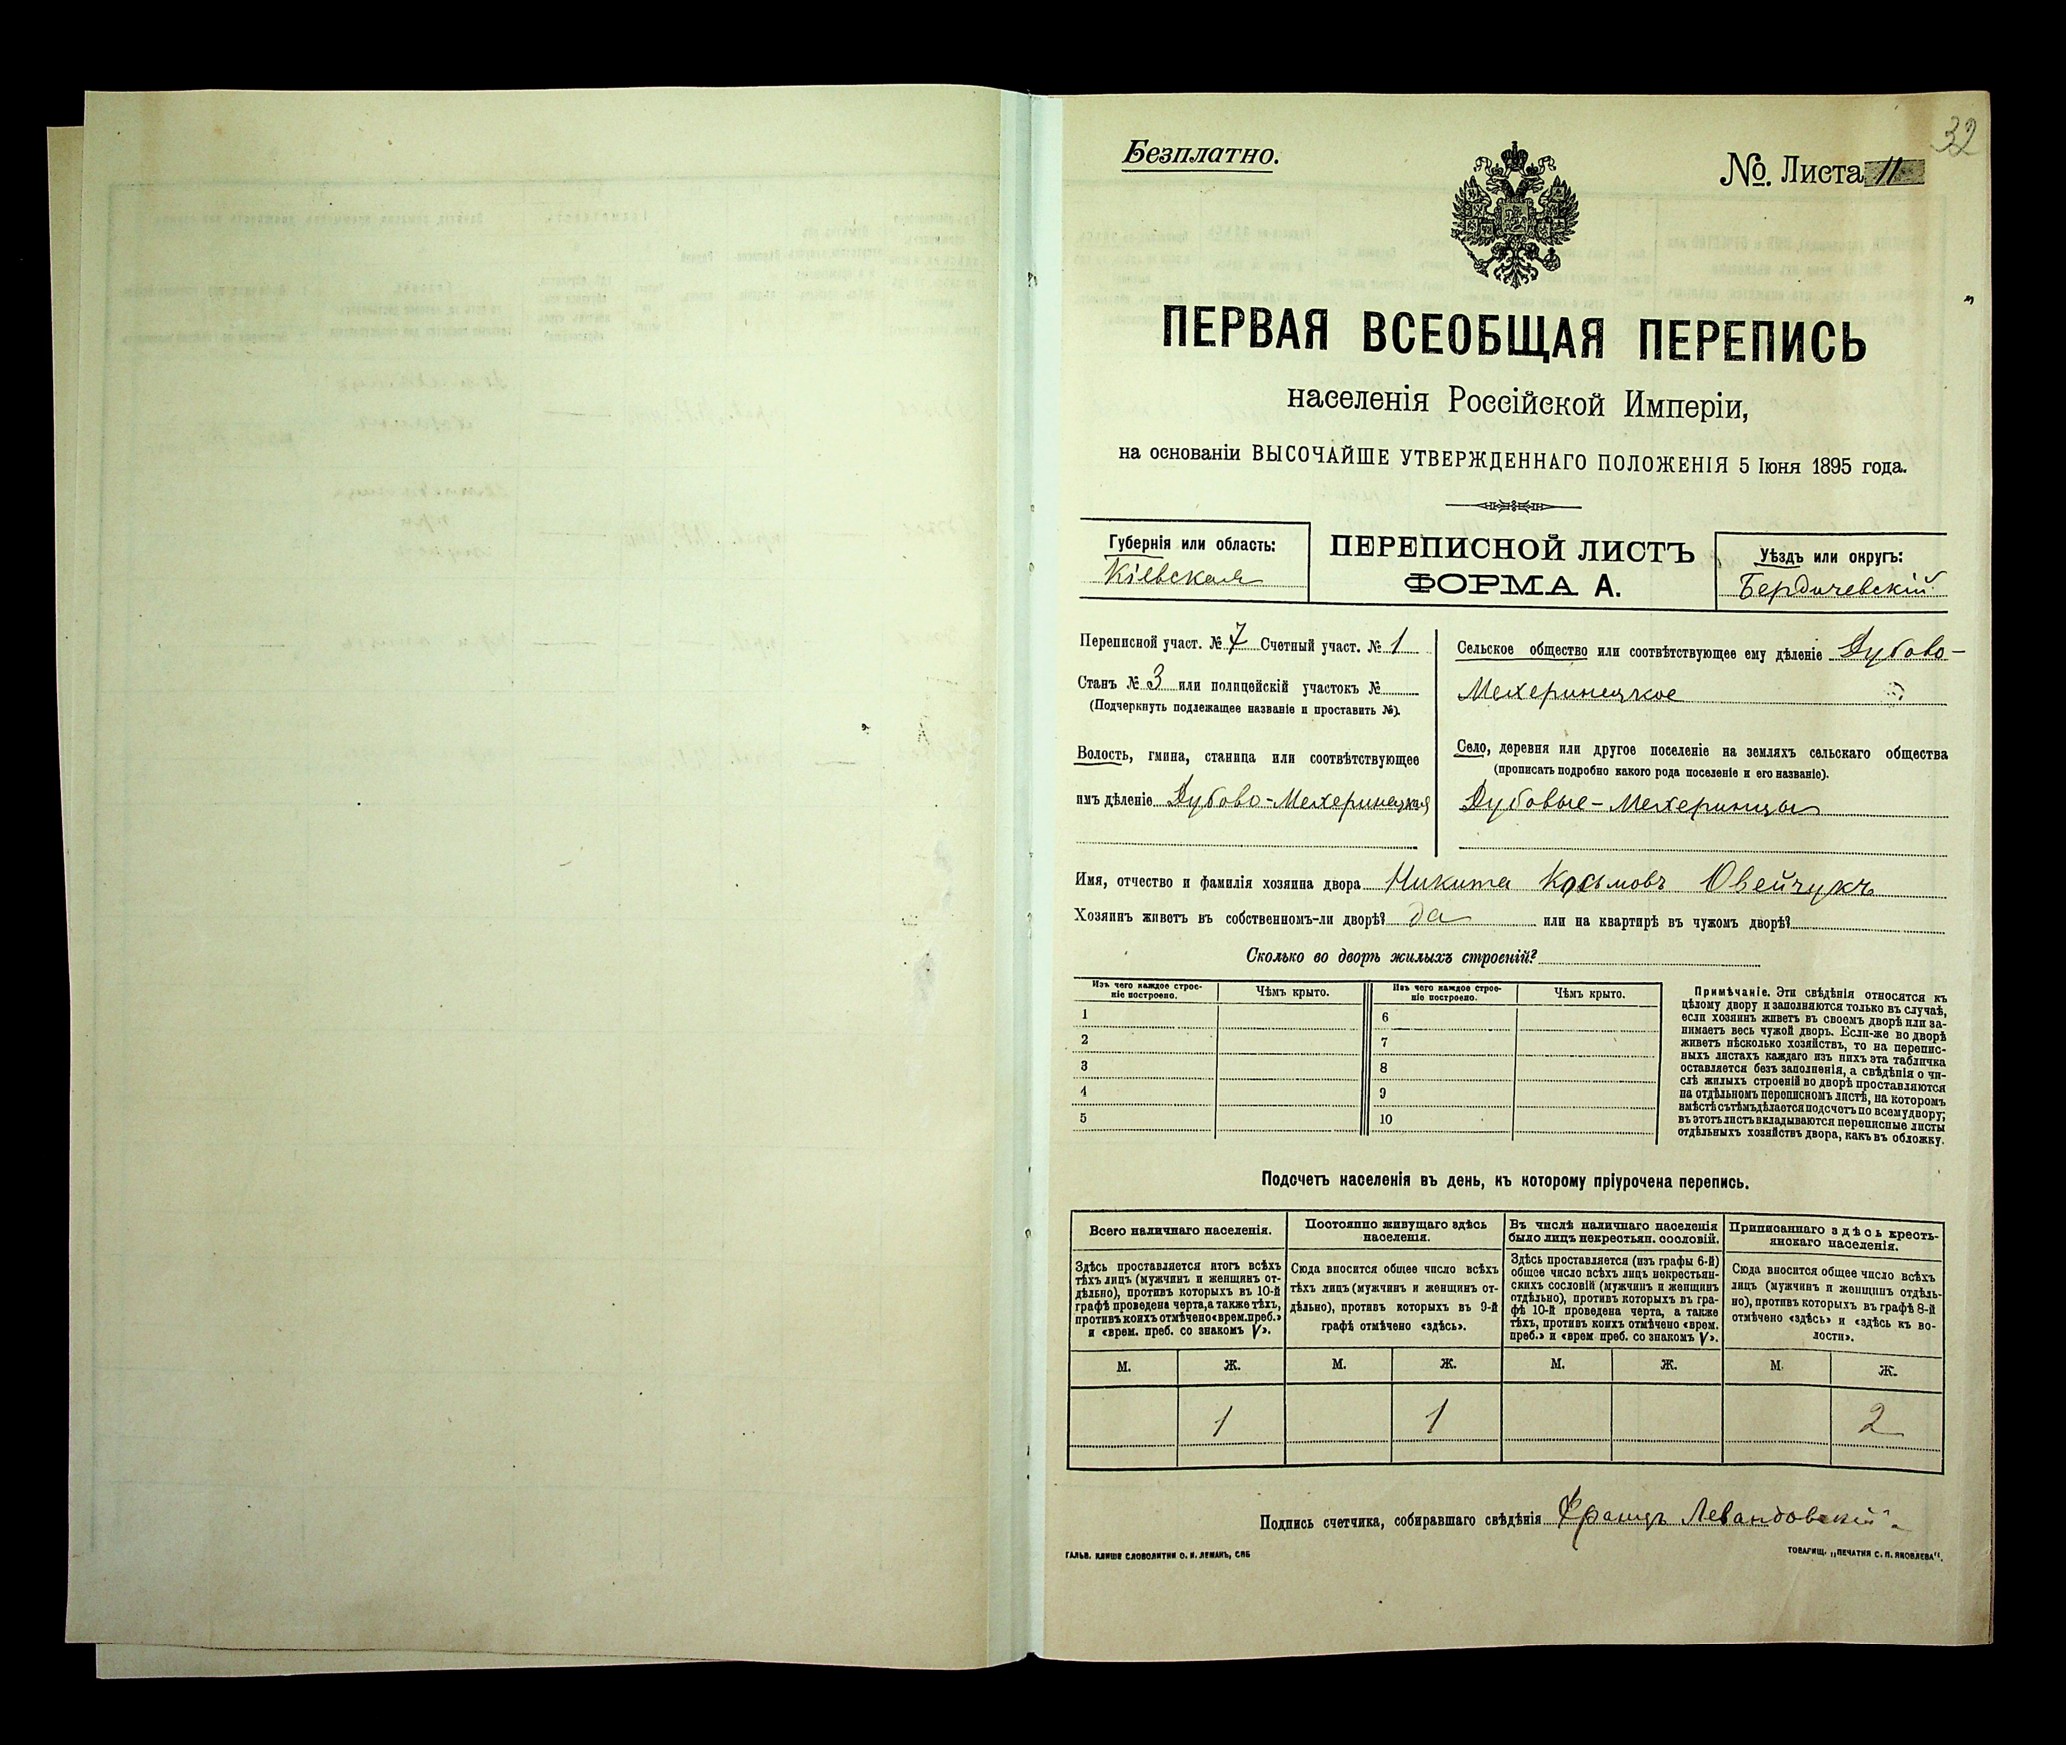 32
Безплатно.
№ Листа 11
ПЕРВАЯ ВСЕОБЩАЯ ПЕРЕПИСЬ
населенія Россійской Имперіи,
на основаніи ВЫСОЧАЙШЕ УТВЕРЖДЕННАГО ПОЛОЖЕНІЯ 5 Іюня 1895 года.
Губернія или область:
Кіевская
ПЕРЕПИСНОЙ ЛИСТЪ
ФОРМА А.
Уѣздъ или округъ:
Бердичевскій
Переписной участ. № 7 Счетный участ. № 1
Станъ № 3 или полицейскій участокъ №
(Подчеркнуть подлежащее названіе и проставить №).
Волость, гмина, станица или соотвѣтствующее
имъ дѣленіе Дубово-Мехеринецкая
Сельское общество или соотвѣтствующее ему дѣленіе Дубово-
Мехеринецкое
Село, деревня или другое поселеніе на земляхъ сельскаго общества
(прописать подробно какого рода поселеніе и его названіе).
Дубовые-Мехеринцы
Имя, отчество и фамилія хозяина двора Никита Косьмовъ Овейчукъ
Хозяинъ живетъ въ собственномъ-ли дворѣ? да или на квартирѣ въ чужомъ дворѣ?
Сколько во дворѣ жилыхъ строеній?
Изъ чего каждое строе-
ніе построено.
Чѣмъ крыто.
Изъ чего каждое строе-
ніе построено.
Чѣмъ крыто.
1 6
2 7
3 8
4 9
5 10
Примѣчаніе. Эти свѣдѣнія относятся къ
цѣлому двору и заполняются только въ случаѣ,
если хозяинъ живетъ въ своемъ дворѣ или за-
нимаетъ весь чужой дворъ. Если-же во дворѣ
живетъ нѣсколько хозяйствъ, то на перепис-
ныхъ листахъ каждаго изъ нихъ эта табличка
оставляется безъ заполненія, а свѣдѣнія о чи-
слѣ жилыхъ строеній во дворѣ проставляются
на отдѣльномъ переписномъ листѣ, на которомъ
вмѣстѣ съ тѣмъ дѣлается подсчетъ по всему двору;
въ этотъ листъ вкладываются переписные листы
отдѣльныхъ хозяйствъ двора, какъ въ обложку.
Подсчетъ населенія въ день, къ которому пріурочена перепись.
Всего наличнаго населенія.
Здѣсь проставляется итогъ всѣхъ
тѣхъ лицъ (мужчинъ и женщинъ от-
дѣльно), противъ которыхъ въ 10-й
графѣ проведена черта, а также тѣхъ,
противъ коихъ отмѣчено «врем. преб.»
и «врем. преб. со знакомъ V».
Постоянно живущаго здѣсь
населенія.
Сюда вносится общее число всѣхъ
тѣхъ лицъ (мужчинъ и женщинъ от-
дѣльно), противъ которыхъ въ 9-й
графѣ отмѣчено «здѣсь».
Въ числѣ наличнаго населенія
было лицъ некрестьян. сословій.
Здѣсь проставляется (изъ графы 6-й)
общее число всѣхъ лицъ некрестьян-
скихъ сословій (мужчинъ и женщинъ
отдѣльно), противъ которыхъ въ гра-
фѣ 10-й проведена черта, а также
тѣхъ, противъ коихъ отмѣчено «врем.
преб.» и «врем преб. со знакомъ V».
Приписаннаго здѣсь кресть-
янскаго населенія.
Сюда вносится общее число всѣхъ
лицъ (мужчинъ и женщинъ отдѣль-
но), противъ которыхъ въ графѣ 8-й
отмѣчено «здѣсь» и «здѣсь къ во-
лости».
М. Ж. М. Ж. М. Ж. М. Ж.
1 1 2
Подпись счетчика, собиравшаго свѣдѣнія Францъ Левандовскій
ГАЛЬВ. КЛИШЕ СЛОВОЛИТНИ О. И. ЛЕМАНЪ, СПБ
ТОВАРИЩ. „ПЕЧАТНЯ С. П. ЯКОВЛЕВА".